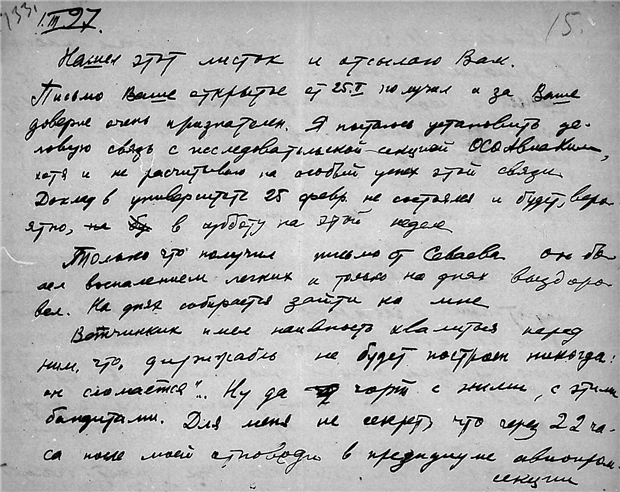 133.
1.III 27.
15.
Нашел этот листок и отсылаю Вам.
Письмо Ваше открытое от 25.II получил и за Ваше
доверие очень признателен. Я пытаюсь установить де-
ловую связь с исследовательской секцией ОСОАвиаХим,
хотя и не расчитываю на особый успех этой связи
Доклад в университете 25 февр. не состоялся и будет, веро
ятно, в субботу на этой неделе
Только что получил письмо от он бы
лел воспалением легких и только на днях выздоро
вел. На днях собирается зайти ко мне
Ветчинкин имел наивность хвалиться перед
ним, что, дирижабль не будет построен никогда:
он сломается"... Ну да чорт с ними, с этими
бандитами. Для меня не секрет, что через 22 ча-
са после моей в президиуме
секции